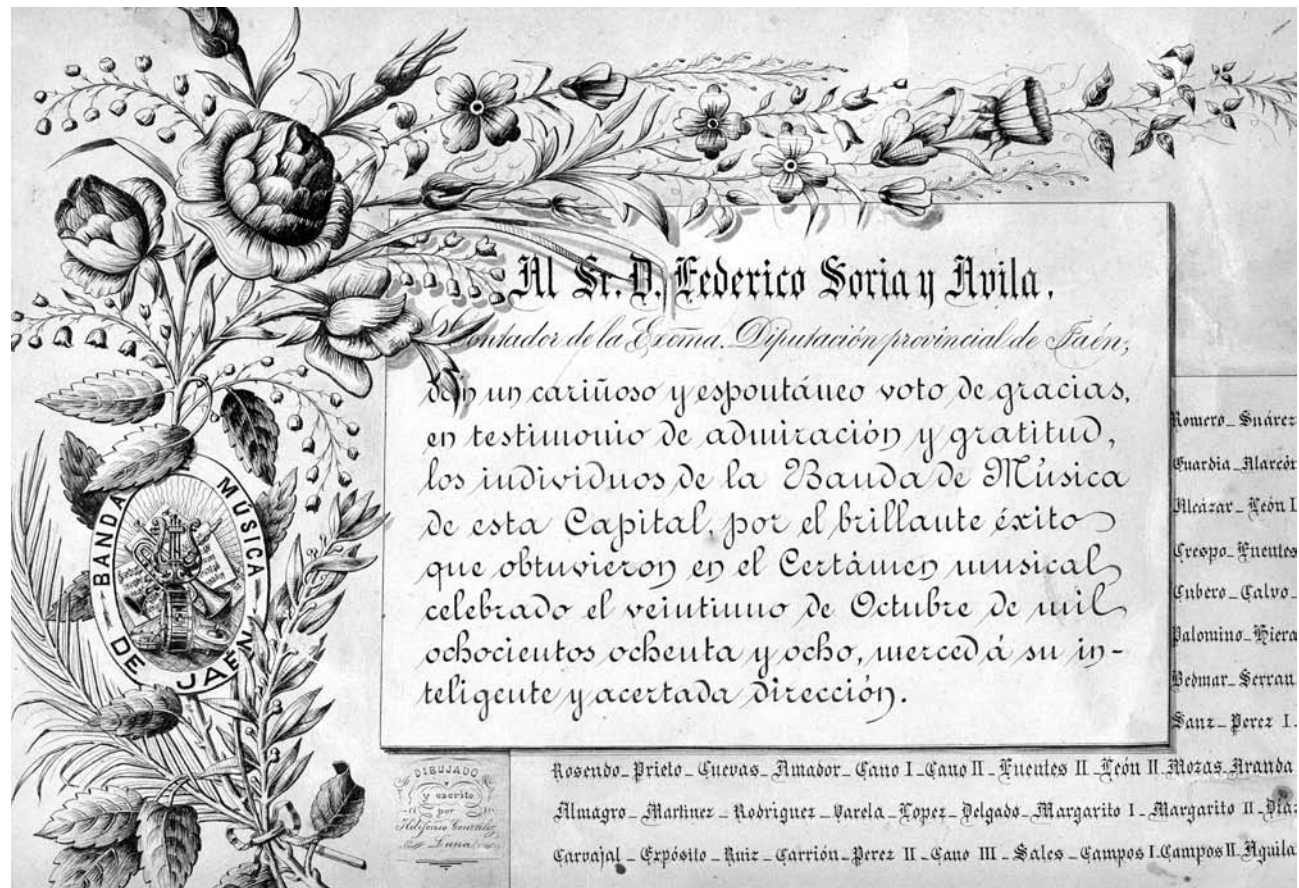 Al Sr. D. Federico Soria y Avila,
Contador de la Excma. Diputación provincial de Jaén;
dan un cariñoso y espontáneo voto de gracias,
en testimonio de admiración y gratitud,
los individuos de la Banda de Música
de esta Capital, por el brillante éxito
que obtuvieron en el Certámen musical
celebrado el veintiuno de Octubre de mil
ochocientos ochenta y ocho, merced á su in-
teligente y acertada dirección.
BANDA MÚSICA
DE JAÉN
Romero_Suárez
Guardia_Alarcón
Alcázar_León I
Crespo_Fuentes
Cubero_Calvo_
Palomino_
Bedmar_
Sanz_Perez I_
Rosendo_Prieto_Cuevas_Amador_Cano I_Cano II_Fuentes II_León II_Mozas_Aranda
Almagro_Martinez_Rodriguez_Varela_Lopez_Delgado_Margarito I_Margarito II_
Carvajal_Expósito_Ruiz_Carrión_Perez II_Cano III_Sales_Campos I_Campos II_
DIBUJADO
y escrito
por
Ildefonso González
Luna